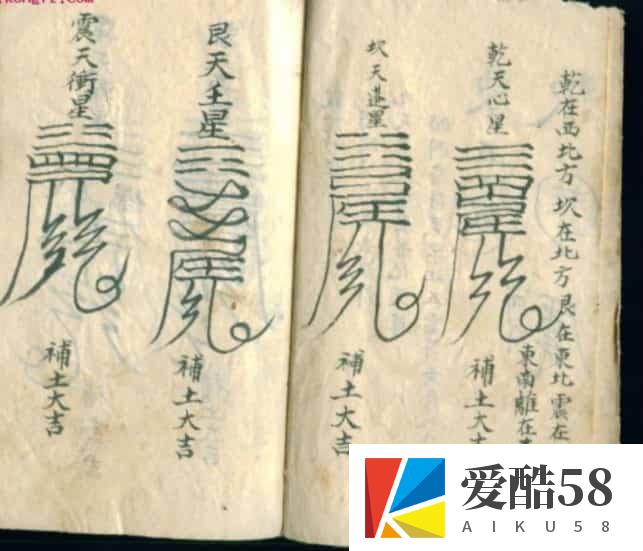 乾在西北方坎在北方艮在東北震在
東南離在
乾天心星
補土大吉
坎天蓬星
補土大吉
艮天壬星
補土大吉
震天衝星
補土大吉
爱酷58
AIKU58